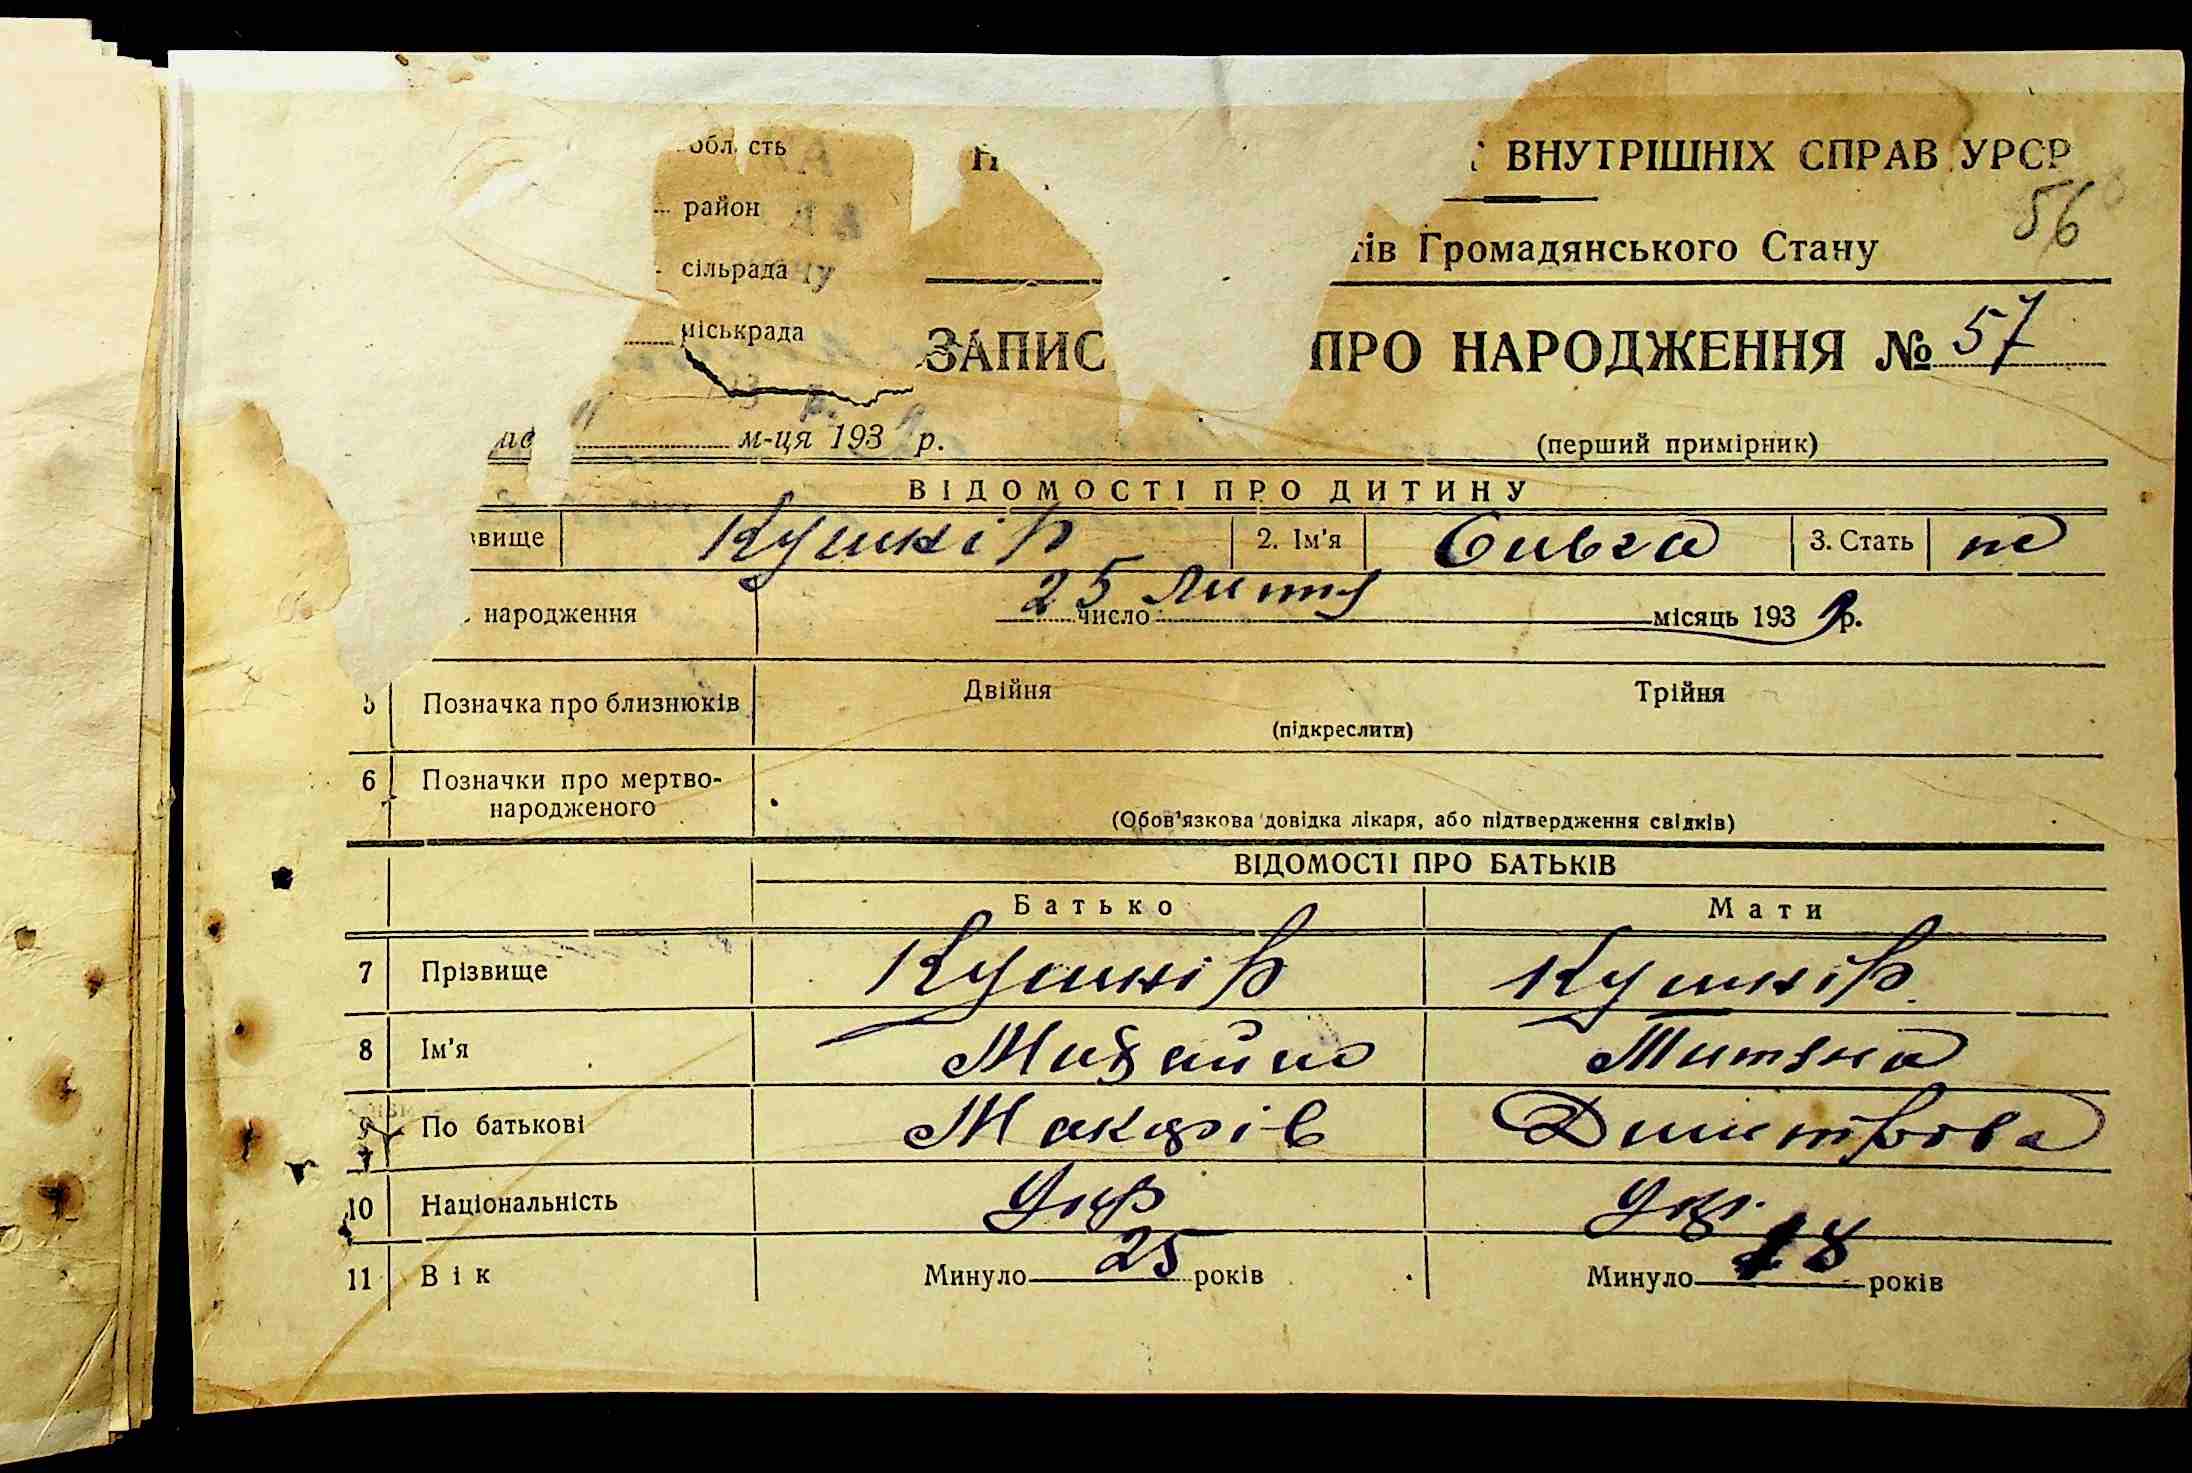 район
ВНУТРІШНІХ СПРАВ УРСР
56
сільрада
Громадянського Стану
міськрада
ЗАПИС ПРО НАРОДЖЕННЯ № 57
м-ця 193 р.
(перший примірник)
ВІДОМОСТІ ПРО ДИТИНУ
Кушнір 2. Ім'я Ольга 3. Стать
народження 25 число Липня місяць 1939 р.
5 Позначка про близнюків Двійня Трійня
(підкреслити)
6 Позначки про мертво-
народженого
(Обов'язкова довідка лікаря, або підтвердження свідків)
ВІДОМОСТІ ПРО БАТЬКІВ
Батько Мати
7 Прізвище Кушнір Кушнір
8 Ім'я Михайло Титяна
9 По батькові Макарів Дмитрова
10 Національність Укр Укр.
11 Вік Минуло 25 років Минуло 18 років